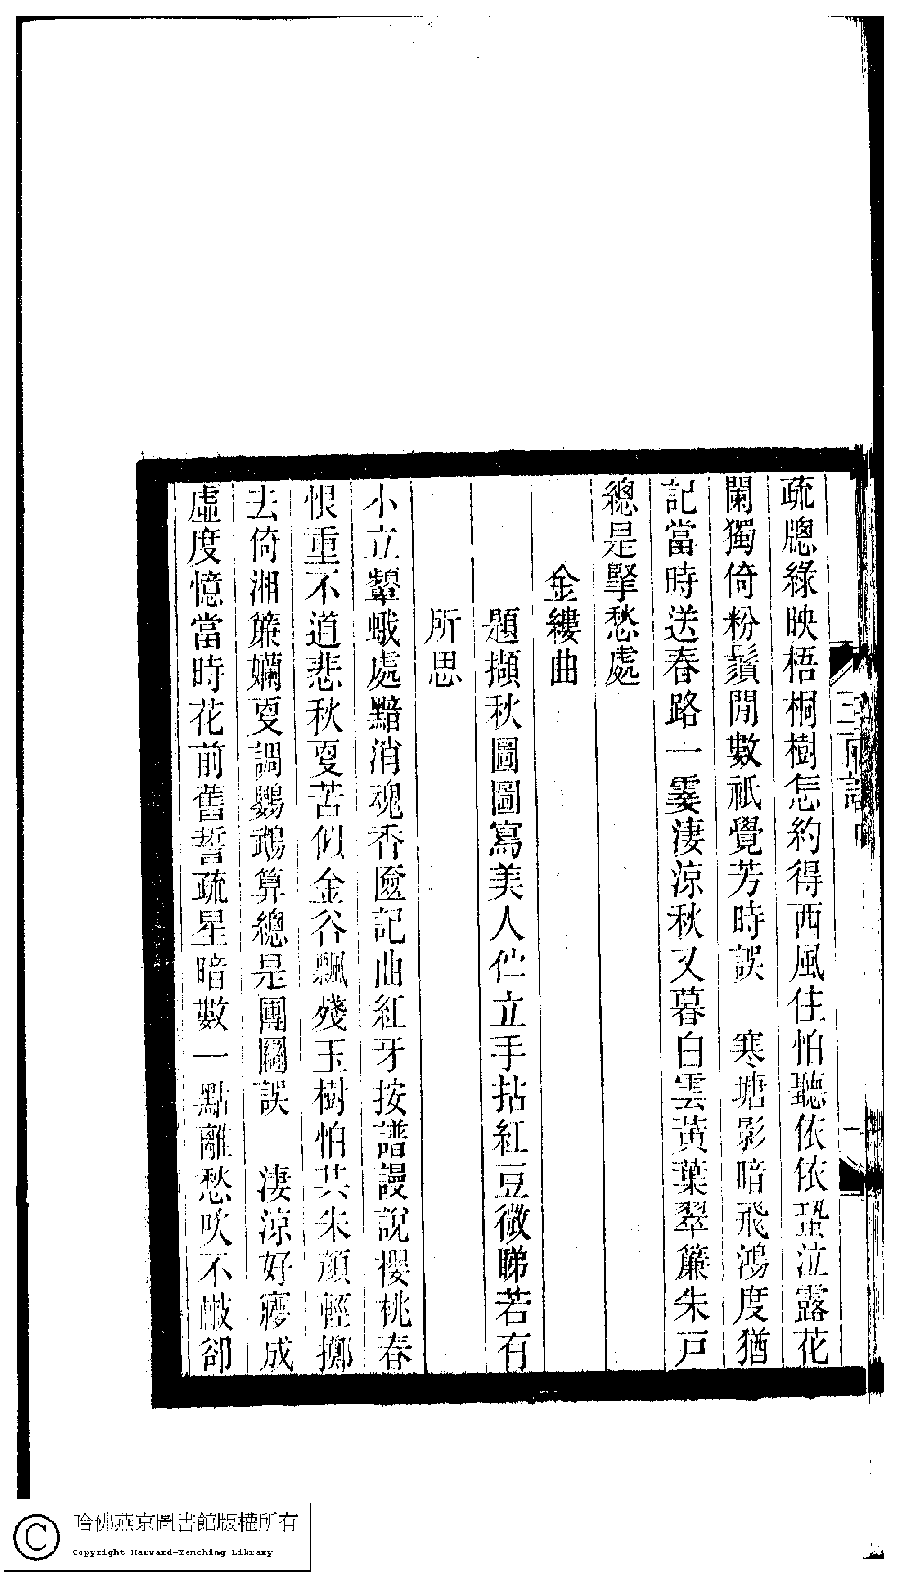 疏牕綠映梧桐樹怎約得西風住怕聽依依蛩泣露花
闌獨倚粉鬚閒數祇覺芳時誤　寒塘影暗飛鴻度猶
記當時送春路一霎淒涼秋又暮白雲黃葉翠簾朱戸
總是擊愁處
金縷曲
題擷秋圖圖寫美人伫立手拈紅豆微睇若有
所思
小立顰蛾處黯消魂香奩記曲紅牙按譜謾說櫻桃春
恨重不道悲秋更苦似金谷飄殘玉樹怕共朱顏輕擲
去倚湘簾嬾更調鸚鵡算總是團圞誤　淒涼好夢成
虛度憶當時花前舊誓疏星暗數一點離愁吹不散卻
一
哈佛燕京圖書館版權所有
Copyright Harvard-Yenching Library